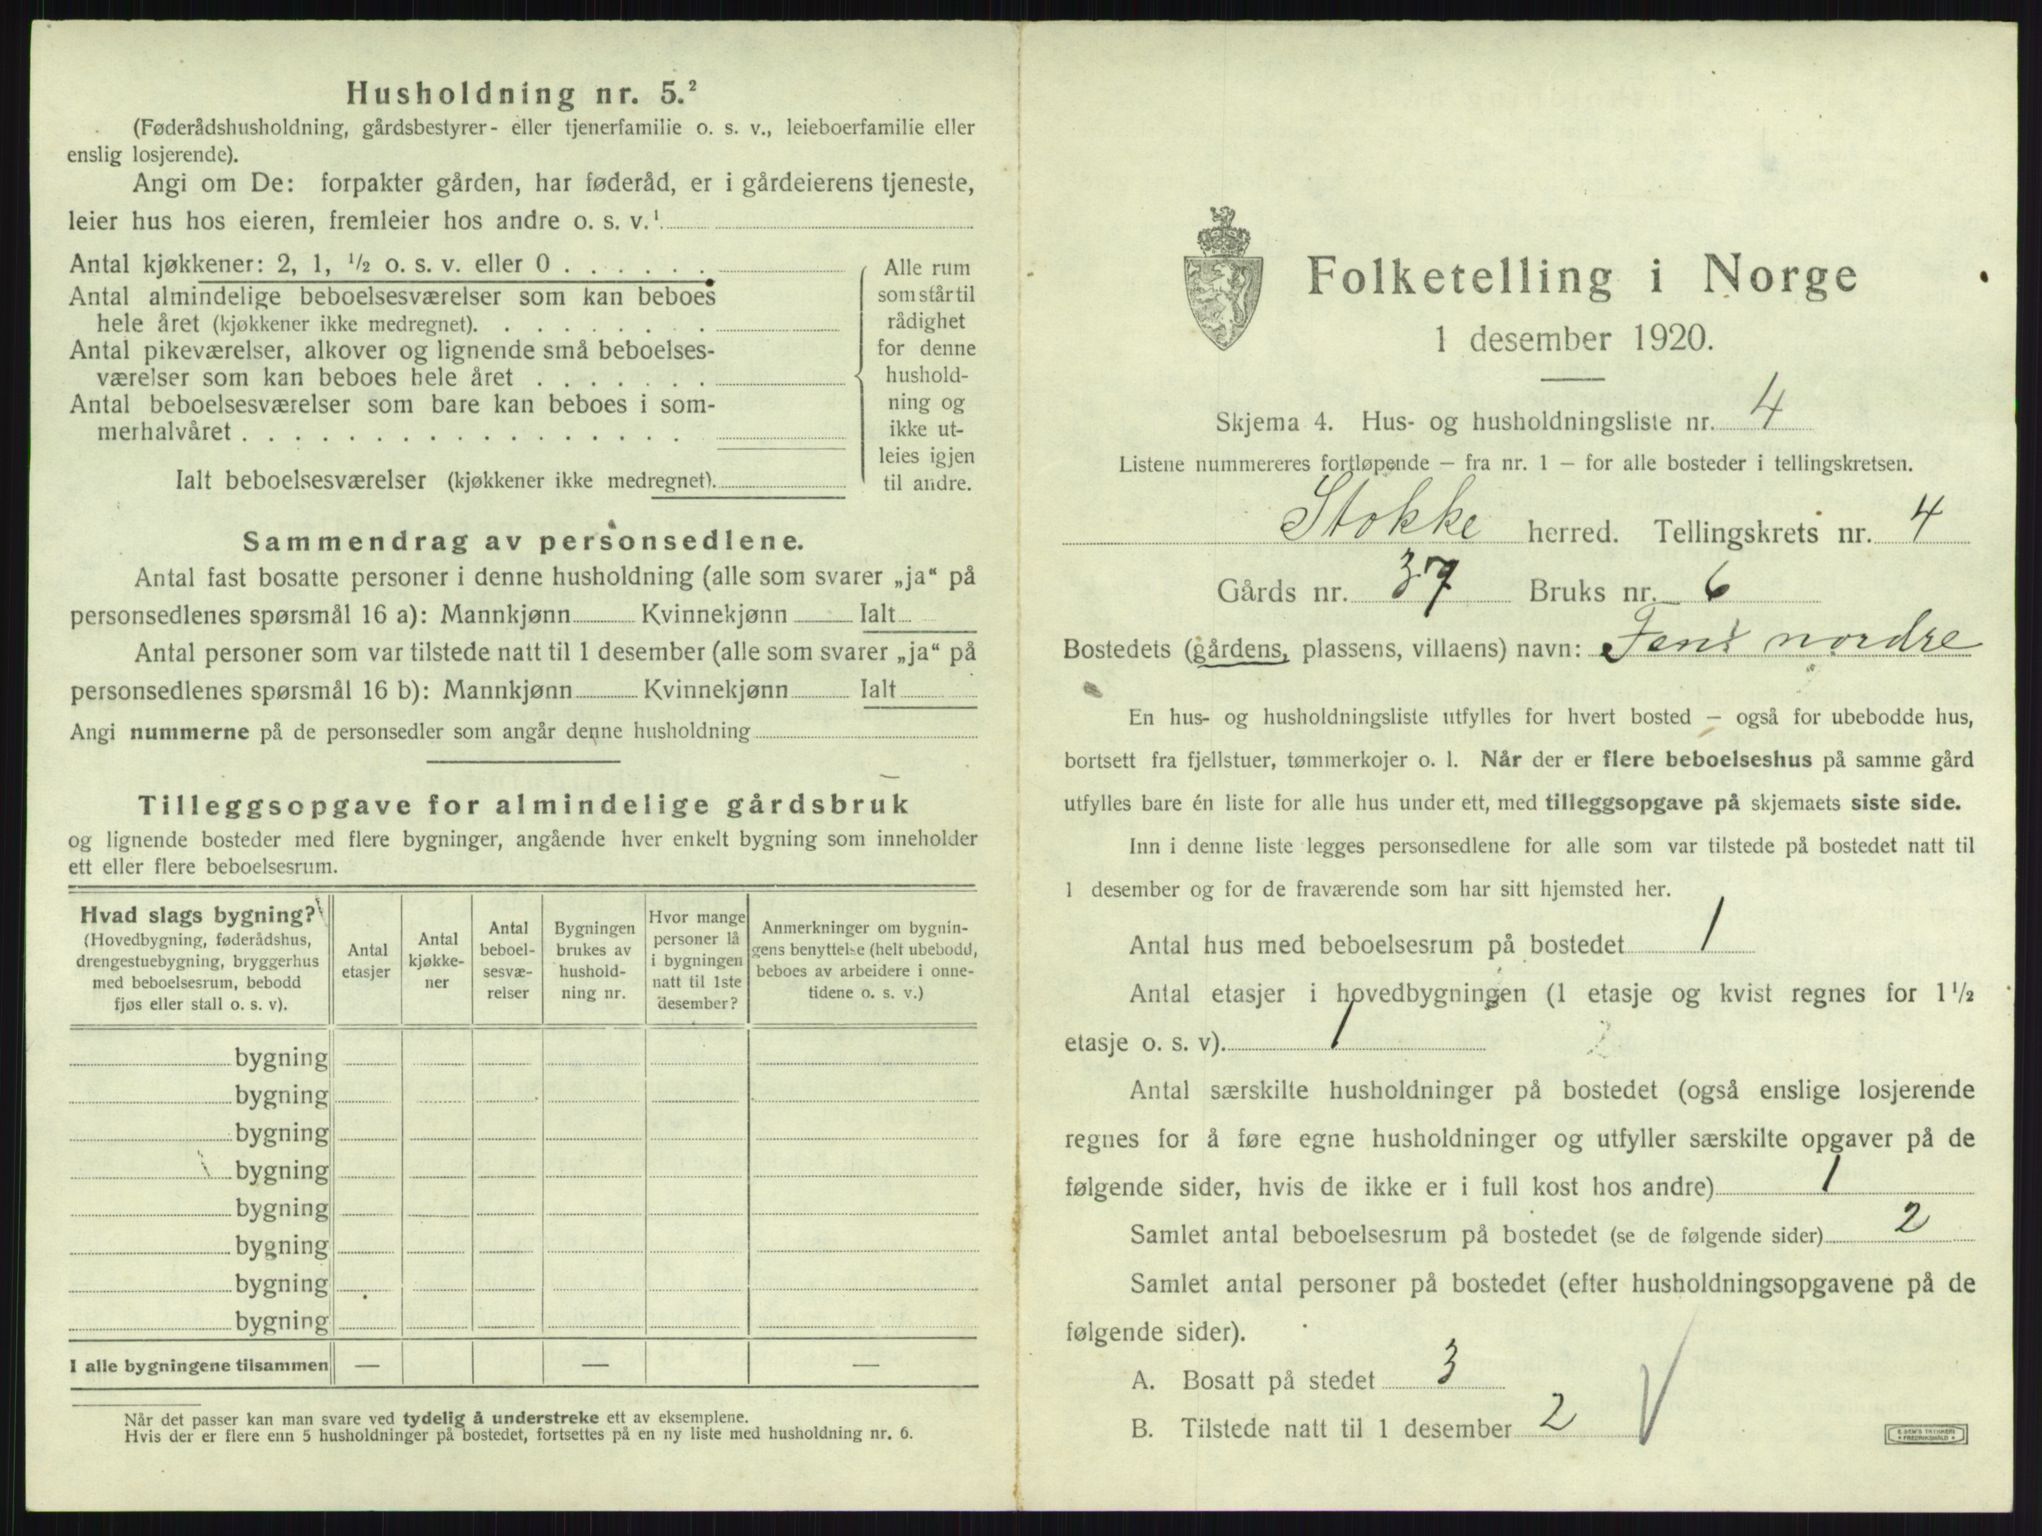 Husholdning nr. 5.²
(Føderådshusholdning, gårdsbestyrer- eller tjenerfamilie o. s. v., leieboerfamilie eller
enslig losjerende).
Angi om De: forpakter gården, har føderåd, er i gårdeierens tjeneste,
leier hus hos eieren, fremleier hos andre o. s. v.¹
Antal kjøkkener: 2, 1, ½ o. s. v. eller 0 . . . . . .
Antal almindelige beboelsesværelser som kan beboes
hele året (kjøkkener ikke medregnet). . . . . . . . .
Antal pikeværelser, alkover og lignende små beboelses-
værelser som kan beboes hele året . . . . . . .
Antal beboelsesværelser som bare kan beboes i som-
merhalvåret . . . . . . . . . . . . . . . . .
Ialt beboelsesværelser (kjøkkener ikke medregnet).
Alle rum
som står til
rådighet
for denne
hushold-
ning og
ikke ut-
leies igjen
til andre.
Sammendrag av personsedlene.
Antal fast bosatte personer i denne husholdning (alle som svarer „ja“ på
personsedlenes spørsmål 16 a): Mannkjønn Kvinnekjønn Ialt
Antal personer som var tilstede natt til 1 desember (alle som svarer „ja“ på
personsedlenes spørsmål 16 b): Mannkjønn Kvinnekjønn Ialt
Angi nummerne på de personsedler som angår denne husholdning
Tilleggsopgave for almindelige gårdsbruk
og lignende bosteder med flere bygninger, angående hver enkelt bygning som inneholder
ett eller flere beboelsesrum.
Hvad slags bygning?
(Hovedbygning, føderådshus,
drengestuebygning, bryggerhus
med beboelsesrum, bebodd
fjøs eller stall o. s. v).
Antal
etasjer
Antal
kjøkke-
ner
Antal
beboel-
sesvæ-
relser
Bygningen
brukes av
hushold-
ning nr.
Hvor mange
personer lå
i bygningen
natt til 1ste
desember?
Anmerkninger om bygnin-
gens benyttelse (helt ubebodd,
beboes av arbeidere i onne-
tidene o. s. v.)
bygning
bygning
bygning
bygning
bygning
bygning
bygning
bygning
I alle bygningene tilsammen — — —
Når det passer kan man svare ved tydelig å understreke ett av eksemplene.
Hvis der er flere enn 5 husholdninger på bostedet, fortsettes på en ny liste med husholdning nr. 6.
Folketelling i Norge
1 desember 1920.
Skjema 4. Hus- og husholdningsliste nr. 4
Listene nummereres fortløpende – fra nr. 1 – for alle bosteder i tellingskretsen.
Stokke herred. Tellingskrets nr. 4
Gårds nr. 37 Bruks nr. 6
Bostedets (gårdens, plassens, villaens) navn: nordre
En hus- og husholdningsliste utfylles for hvert bosted – også for ubebodde hus,
bortsett fra fjellstuer, tømmerkojer o. l. Når der er flere beboelseshus på samme gård
utfylles bare én liste for alle hus under ett, med tilleggsopgave på skjemaets siste side.
Inn i denne liste legges personsedlene for alle som var tilstede på bostedet natt til
1 desember og for de fraværende som har sitt hjemsted her.
Antal hus med beboelsesrum på bostedet 1
Antal etasjer i hovedbygningen (1 etasje og kvist regnes for 1½
etasje o. s. v). 1
Antal særskilte husholdninger på bostedet (også enslige losjerende
regnes for å føre egne husholdninger og utfyller særskilte opgaver på de
følgende sider, hvis de ikke er i full kost hos andre) 1
Samlet antal beboelsesrum på bostedet (se de følgende sider) 2
Samlet antal personer på bostedet (efter husholdningsopgavene på de
følgende sider).
A. Bosatt på stedet 3
B. Tilstede natt til 1 desember 2